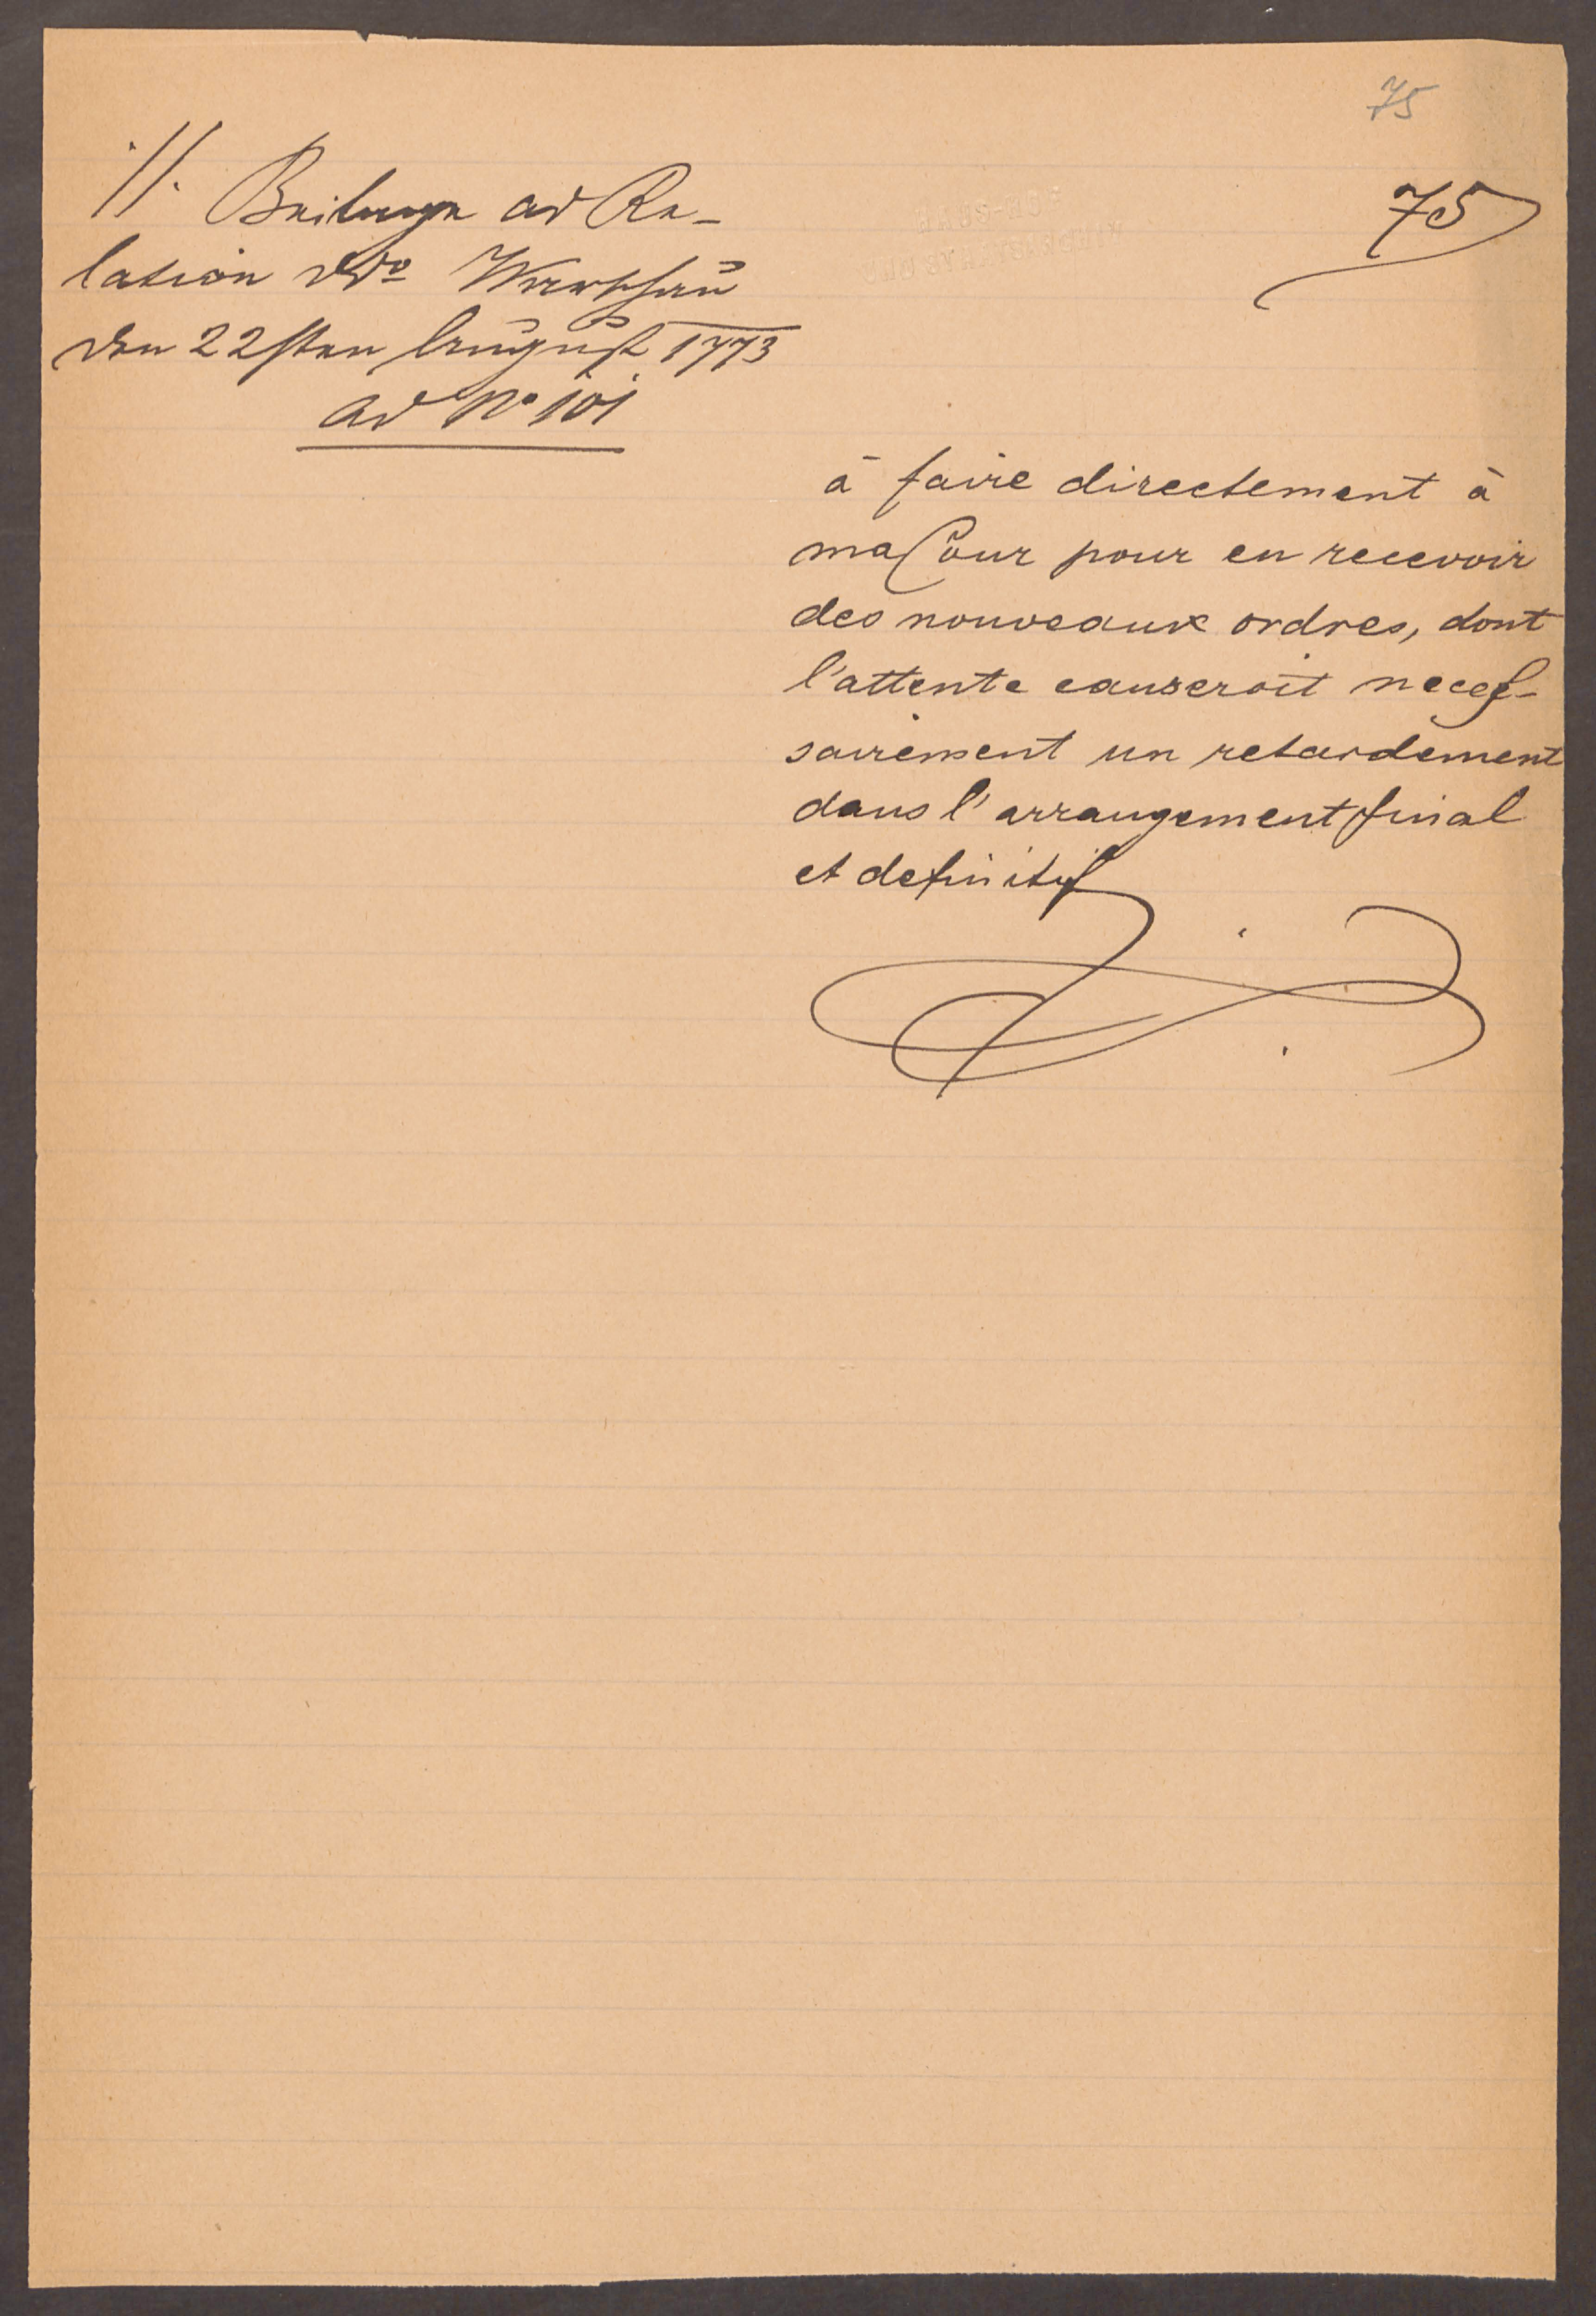 75
75
·//. Beilage ad Re-
lation ddo Warschau
den 22sten August 1773
ad No 101
à faire directement à
ma Cour pour en recevoir
des nouveaux ordres, dont
l'attente causeroit neces-
sairement un retardement
dans l'arrangement final
et definitif